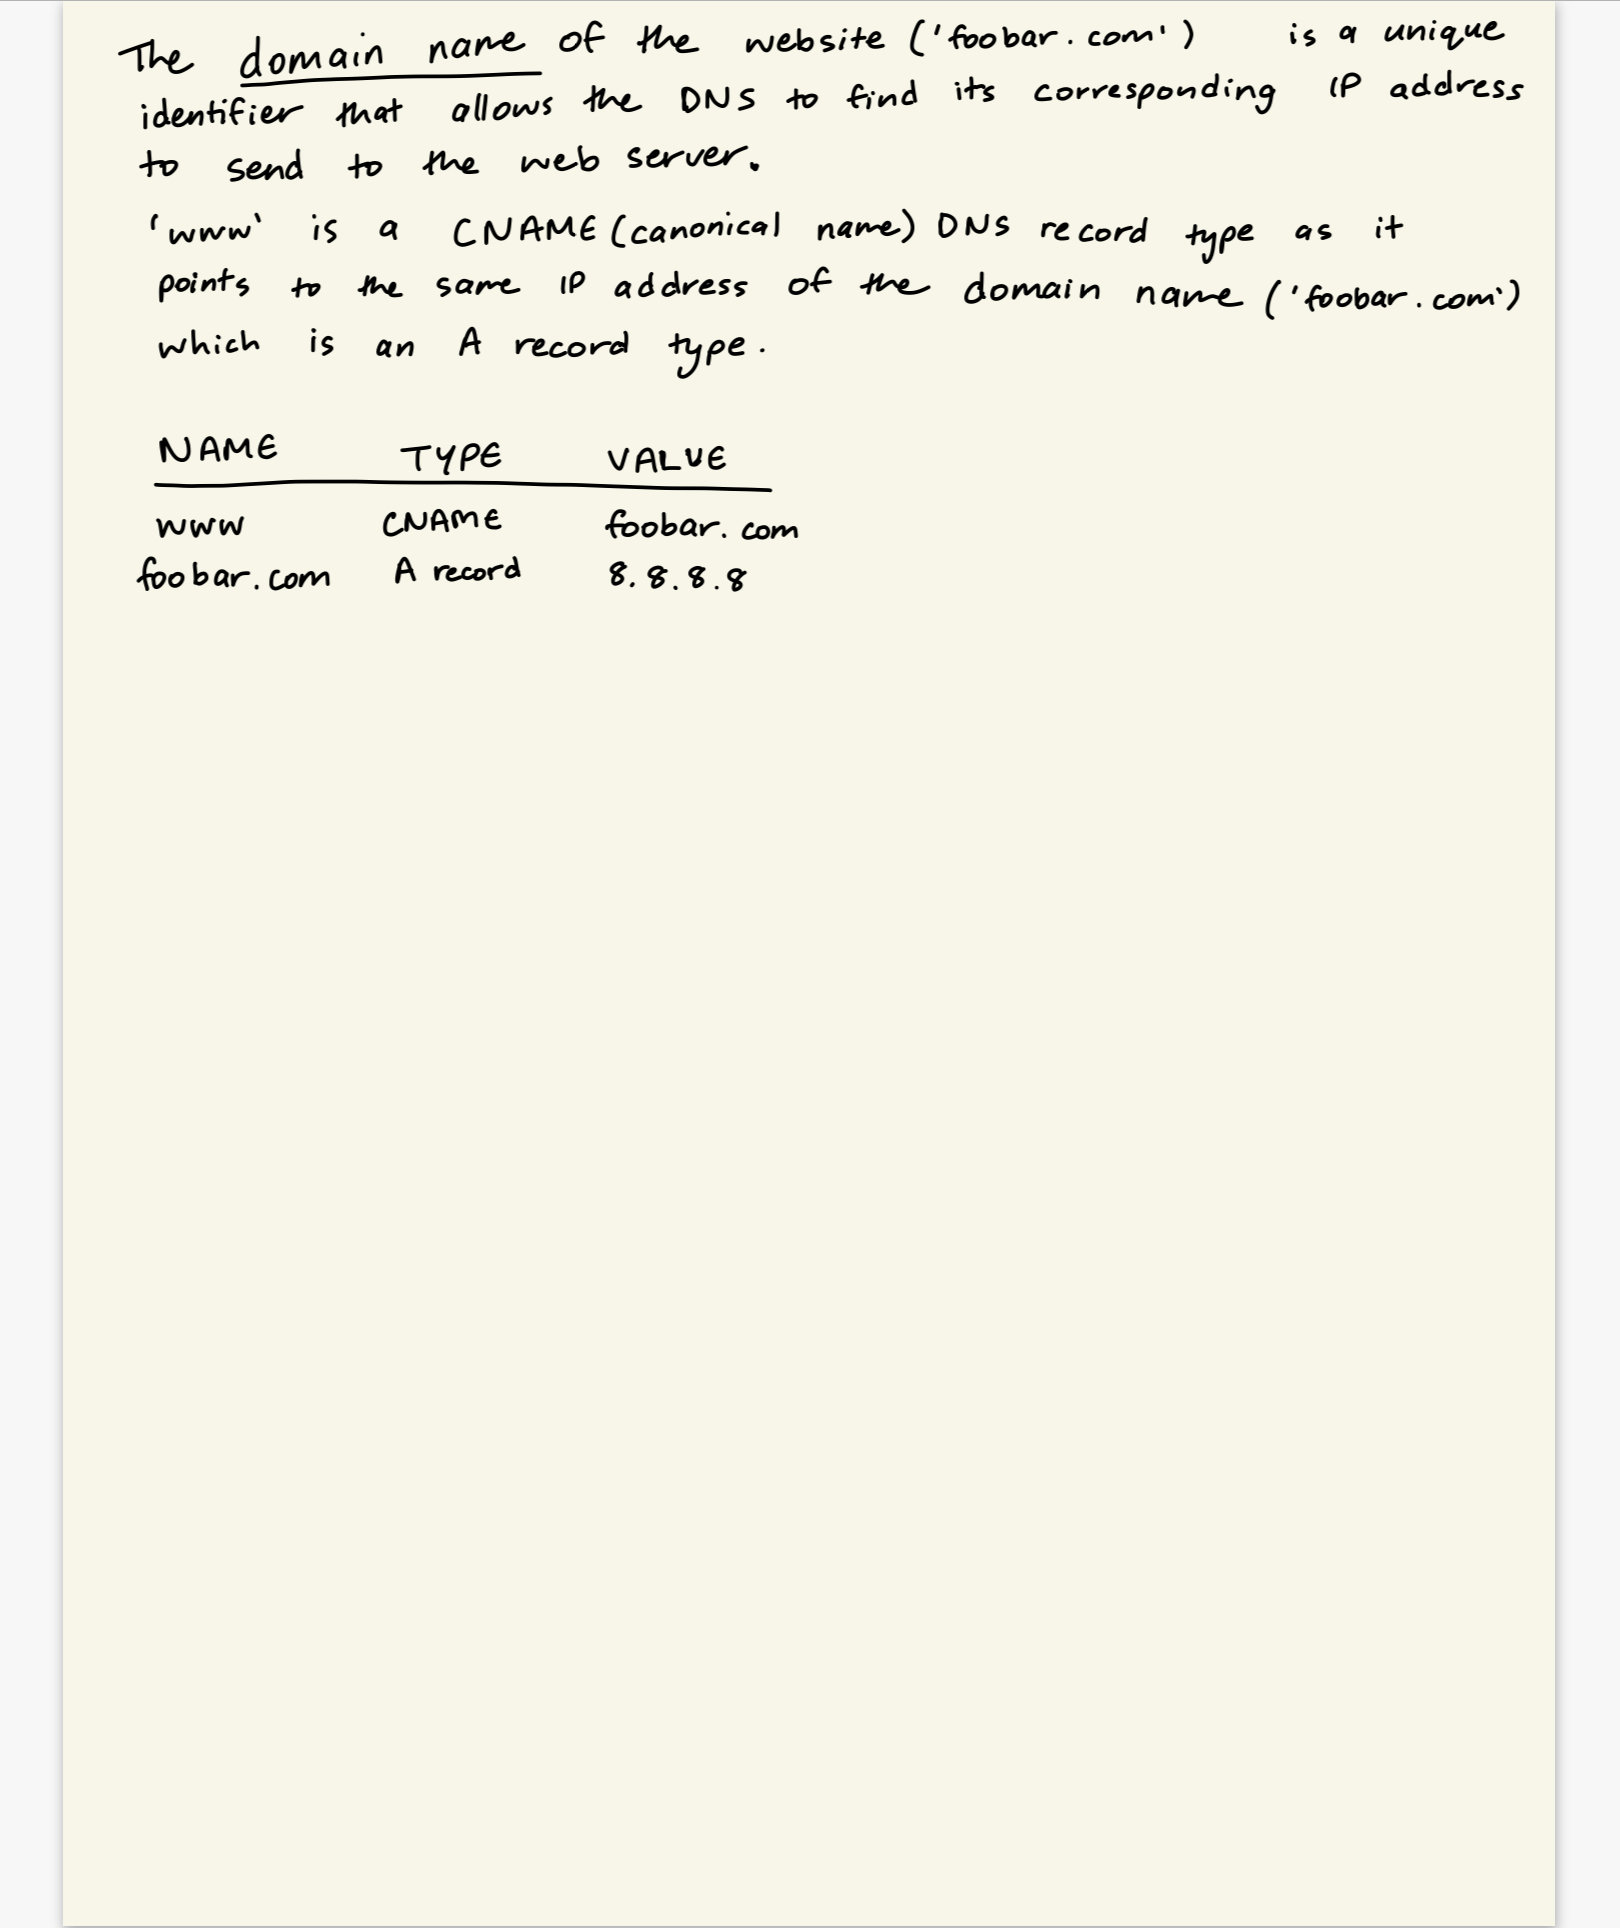 The domain name of the website ('foobar.com') is a unique
identifier that allows the DNS to find its corresponding IP address
to send to the web server.
'www' is a CNAME (canonical name) DNS record type as it
points to the same IP address of the domain name ('foobar.com')
which is an A record type.
NAME TYPE VALUE
www CNAME foobar.com
foobar.com A record 8.8.8.8